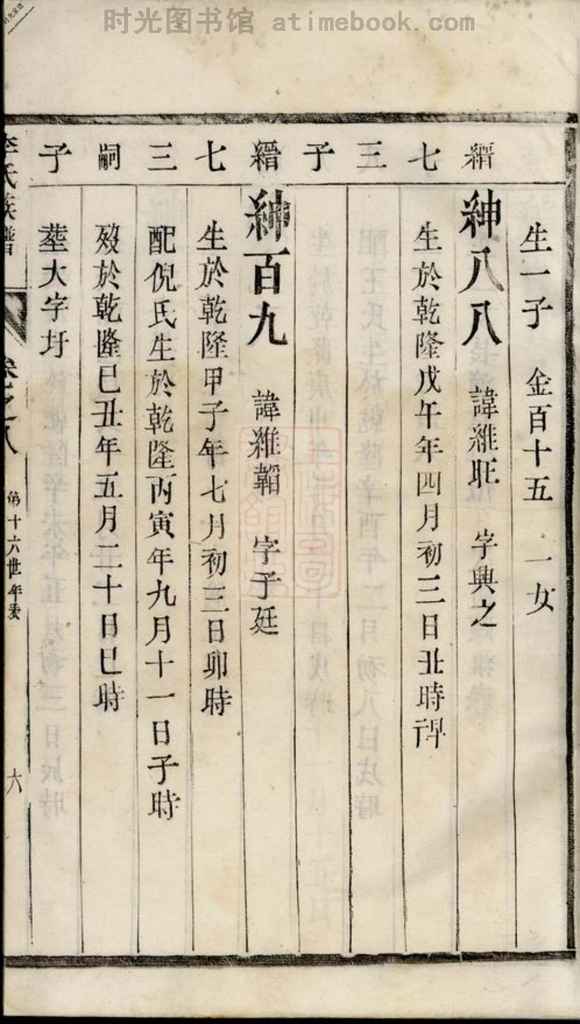 时光图书馆 atimebook.com
生一子 金百十五 一女
縉 紳八八 諱維旺 字典之
七 生於乾隆戊午年四月初三日丑時
三
子
縉 紳百九 諱維韜 字于廷
七 生於乾隆甲子年七月初三日卯時
三 配倪氏生於乾隆丙寅年九月十一日子時
嗣 歿於乾隆己丑年五月二十日巳時
子 塟大字圩
李氏族譜 卷之八 第十六世年表 六